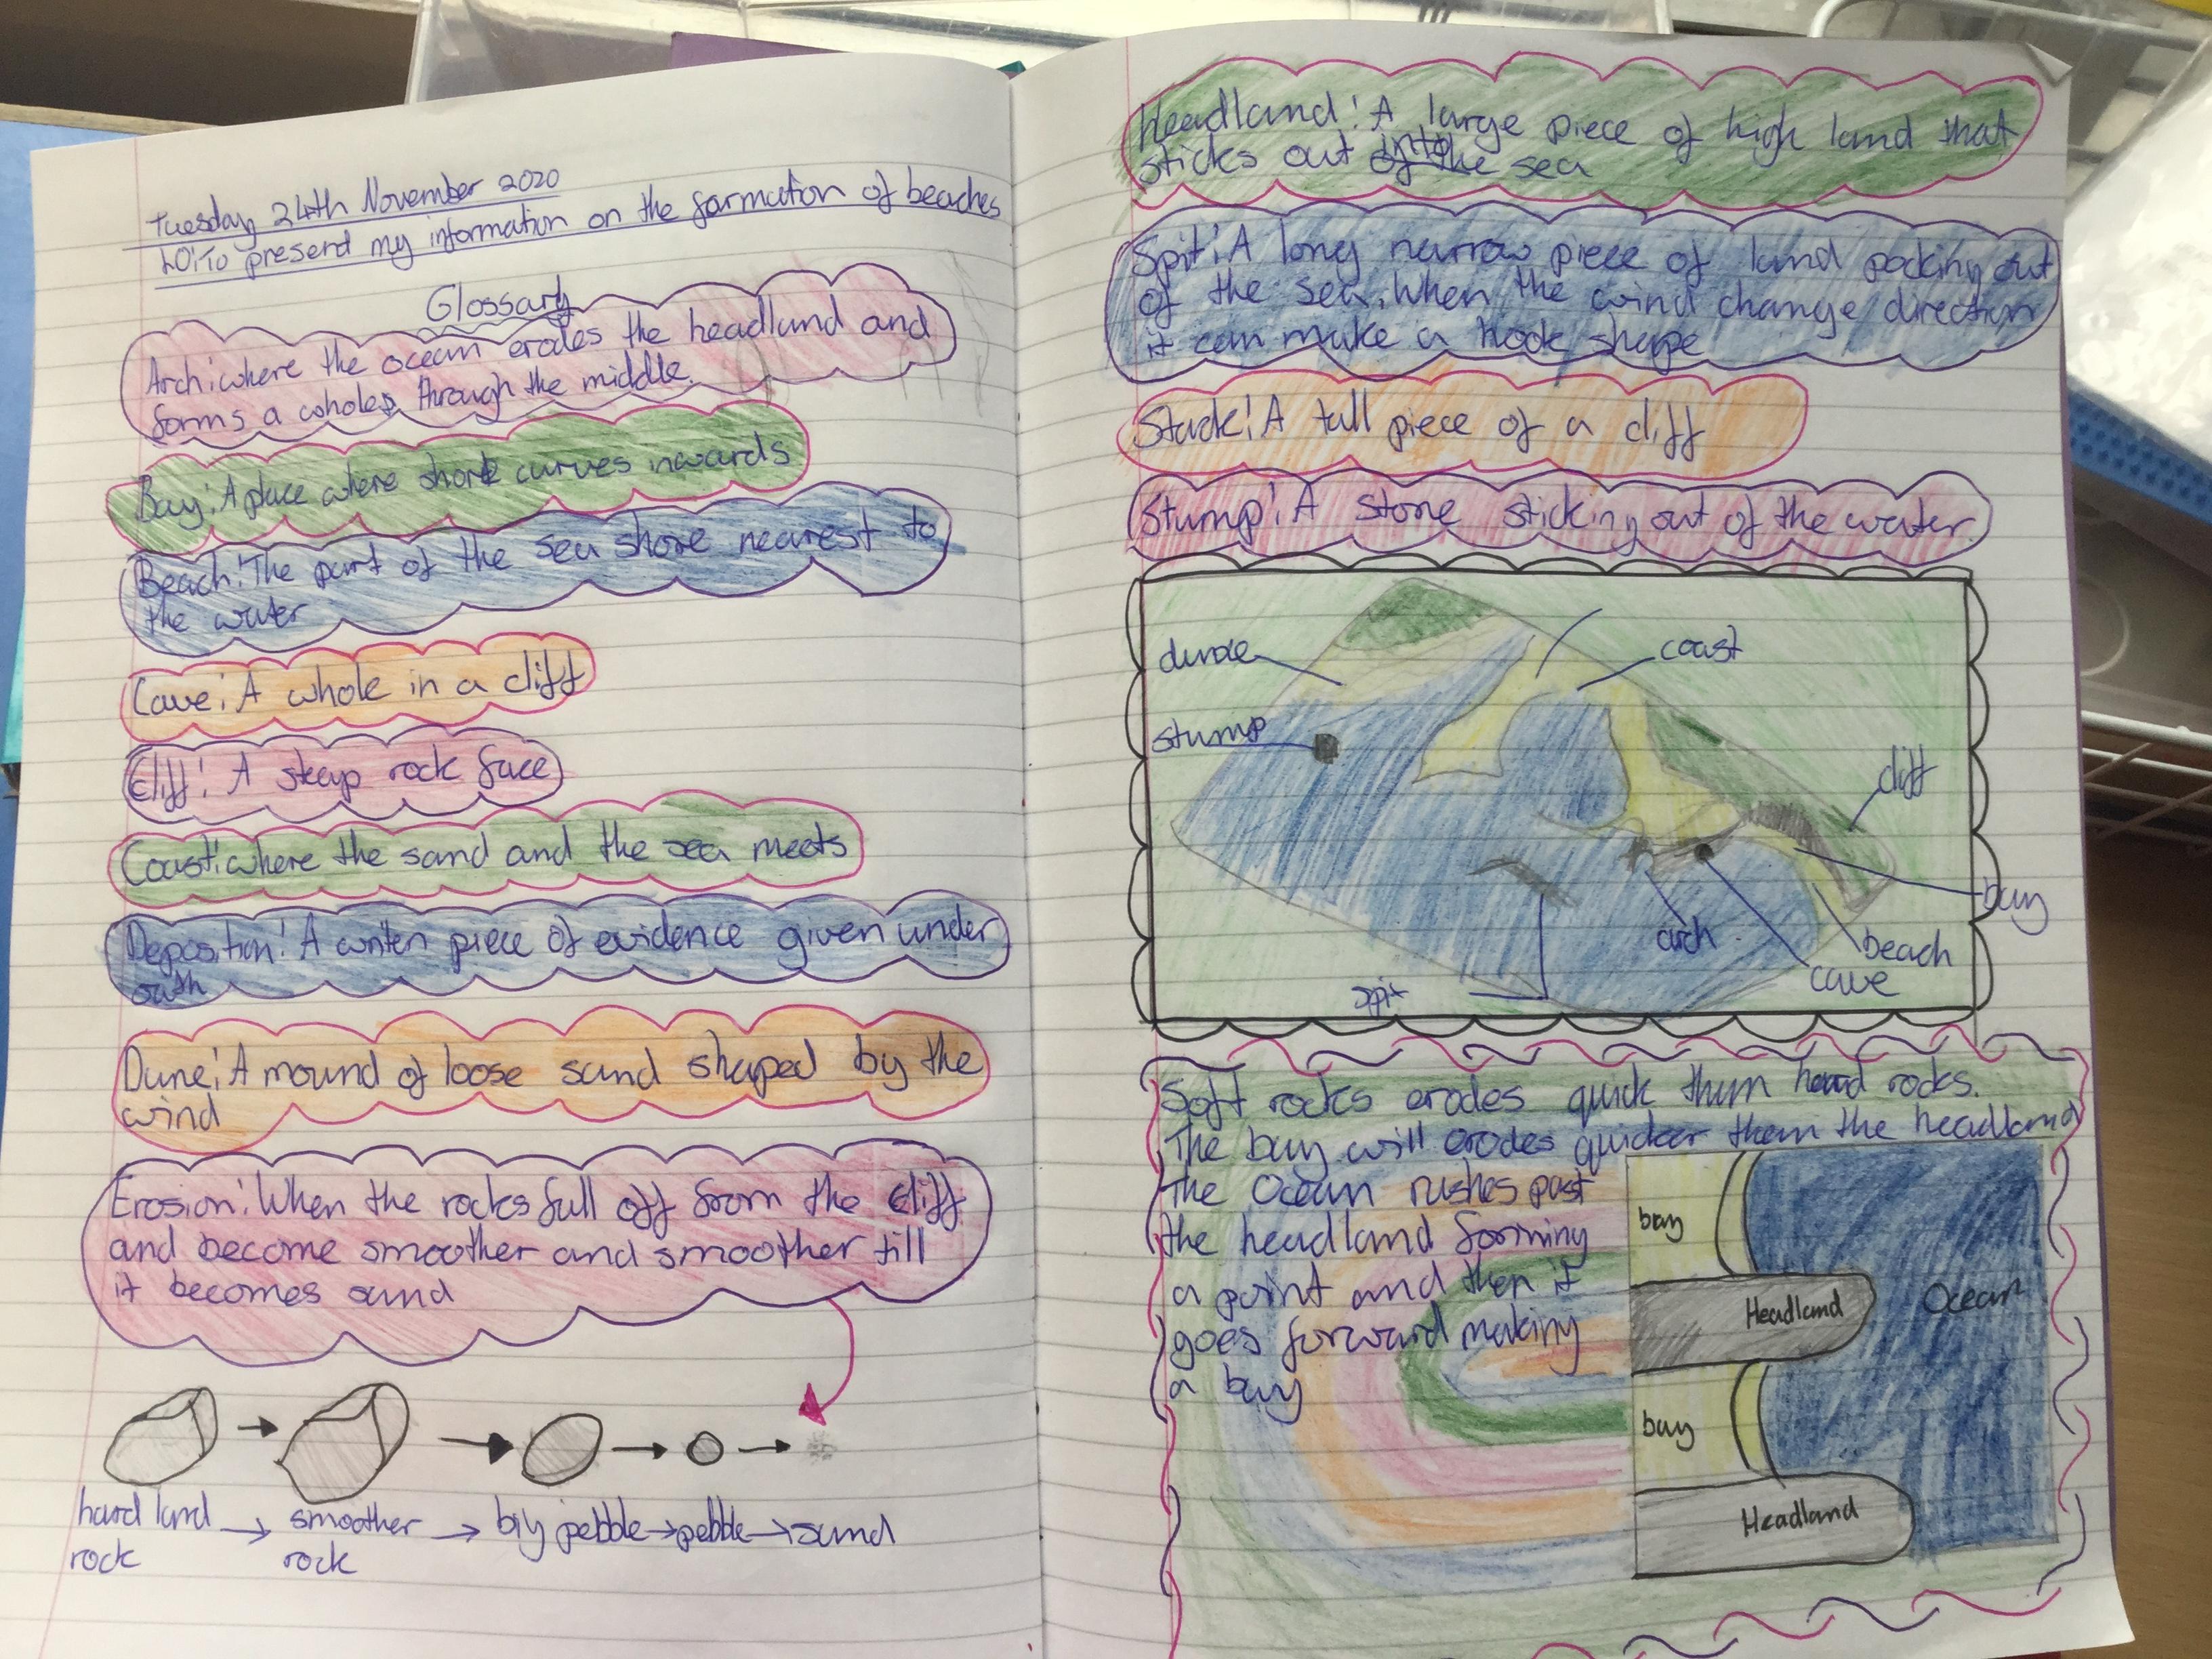 Tuesday 24th November 2020
LO: To present my information on the formation of beaches
Glossary
Arch: where the ocean erodes the headland and
forms a whole, through the middle.
Bay: A place where shore curves inwards
Beach: The part of the sea shore nearest to
the water
Cave: A whole in a cliff
Cliff: A steep rock face
Coast: where the sand and the sea meets
Deposition: A writen piece of evidence given under
oath
Dune: A mound of loose sand shaped by the
wind
Erosion: When the rocks fall off from the cliff
and become smoother and smoother till
it becomes sand
hard land → smoother → big pebble → pebble → sand
rock rock
Headland: A large piece of high land that
sticks out into the sea
Spit: A long narrow piece of land pocking out
of the sea. When the wind change direction
it can make a hook shape
Stack: A tall piece of a cliff
Stump: A stone sticking out of the water.
dune
coast
stump
cliff
bay
arch
beach
cave
spit
Soft rocks erodes quick than hard rocks.
The bay will erodes quicker than the headland
The Ocean rushes past
the headland forming
a point and then it
goes forward making
a bay
bay
Headland
Ocean
bay
Headland